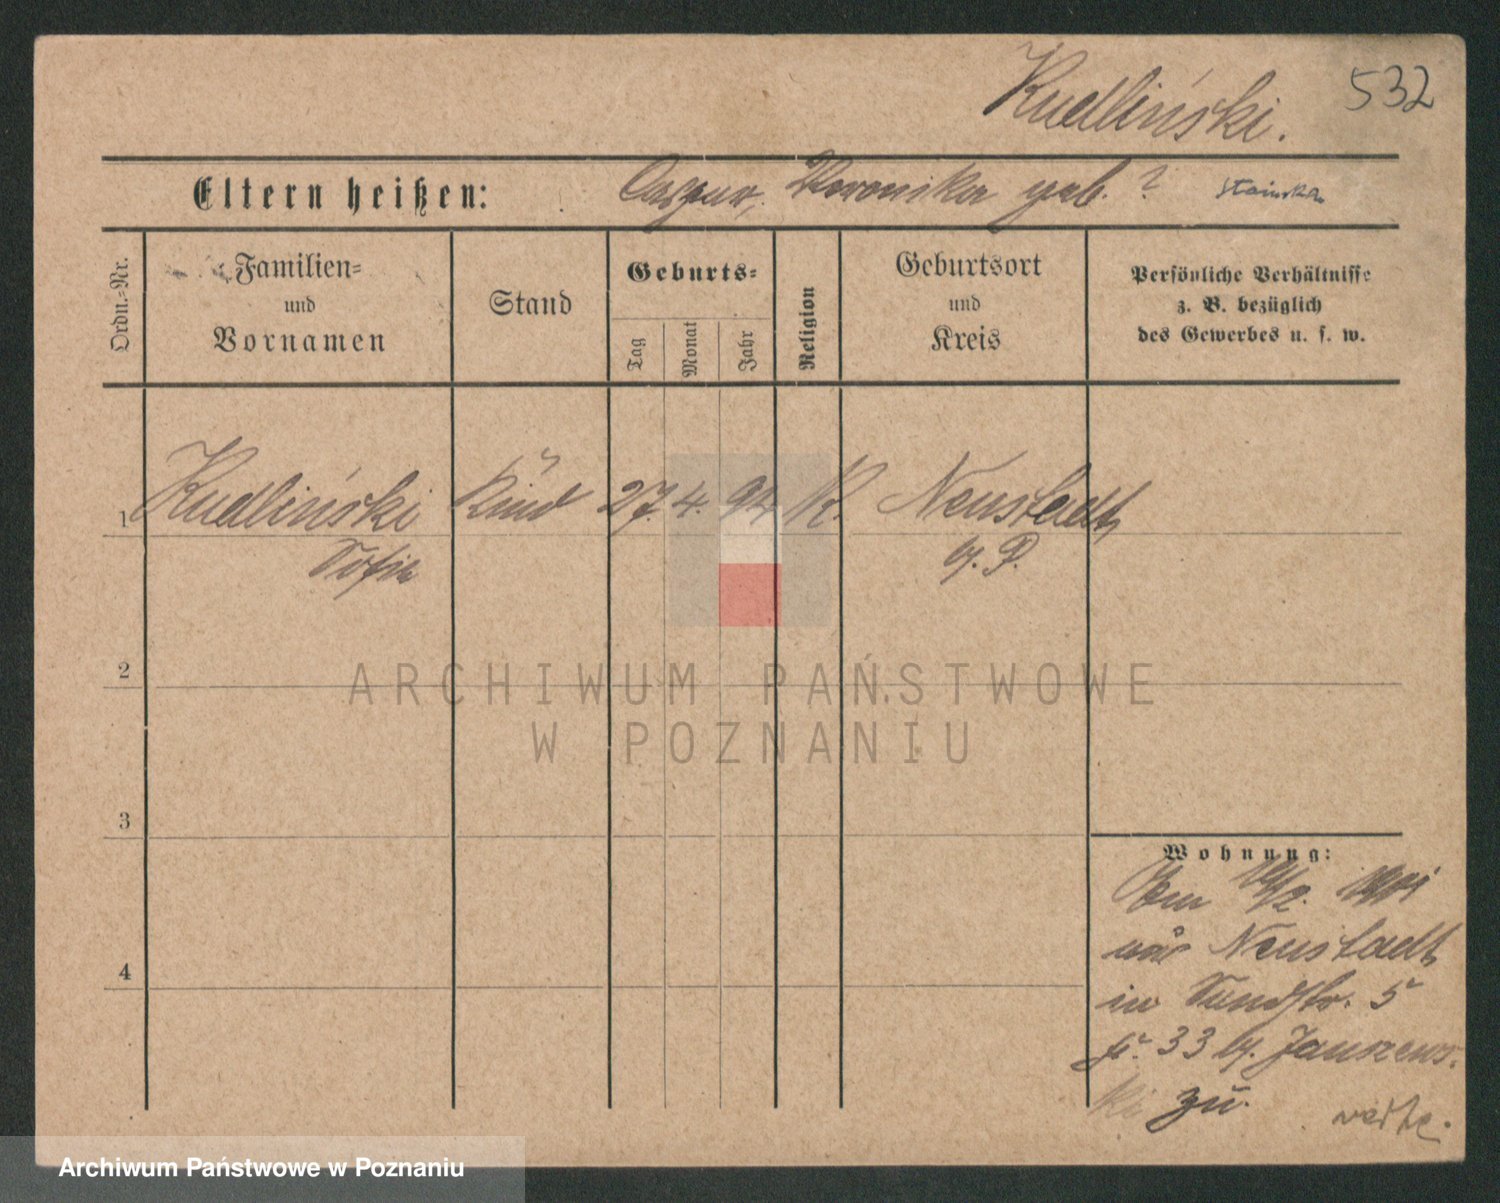 532
Kudliński.
Eltern heißen: Caspar, Veronika geb. ?
Ordn.-Nr.
Familien-
und
Vornamen
Stand
Geburts-
Tag
Monat
Jahr
Religion
Geburtsort
und
Kreis
Persönliche Verhältnisse
z. B. bezüglich
des Gewerbes u. s. w.
1 Kudliński Kind 27. 4. 94 K. Neustadt
Sofie b. P.
2
3
4
Wohnung:
Neustadt
in 5
33 b. Janszews-
ki zu.
ARCHIWUM PAŃSTWOWE
W POZNANIU
Archiwum Państwowe w Poznaniu